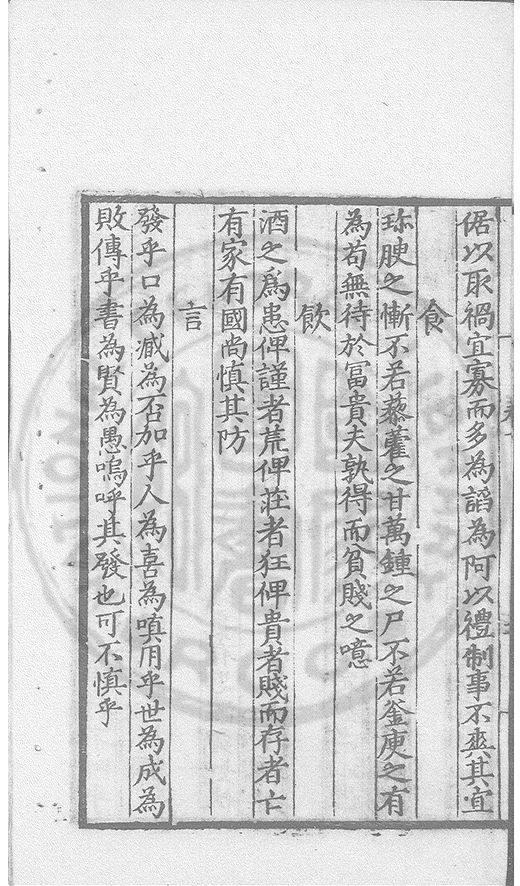 倨以取禍宜寡而多為謟為阿以禮制事不爽其宜
食
珎腴之慚不若藜藿之甘萬鍾之尸不若釜庾之有
為苟無待於冨貴夫孰得而貧賤之噫
飲
酒之爲患俾謹者荒俾莊者狂俾貴者賤而存者亡
有家有國尚慎其防
言
發乎口為臧為否加乎人為喜為嗔用乎世為成為
敗傳乎書為賢為愚嗚呼其發也可不慎乎